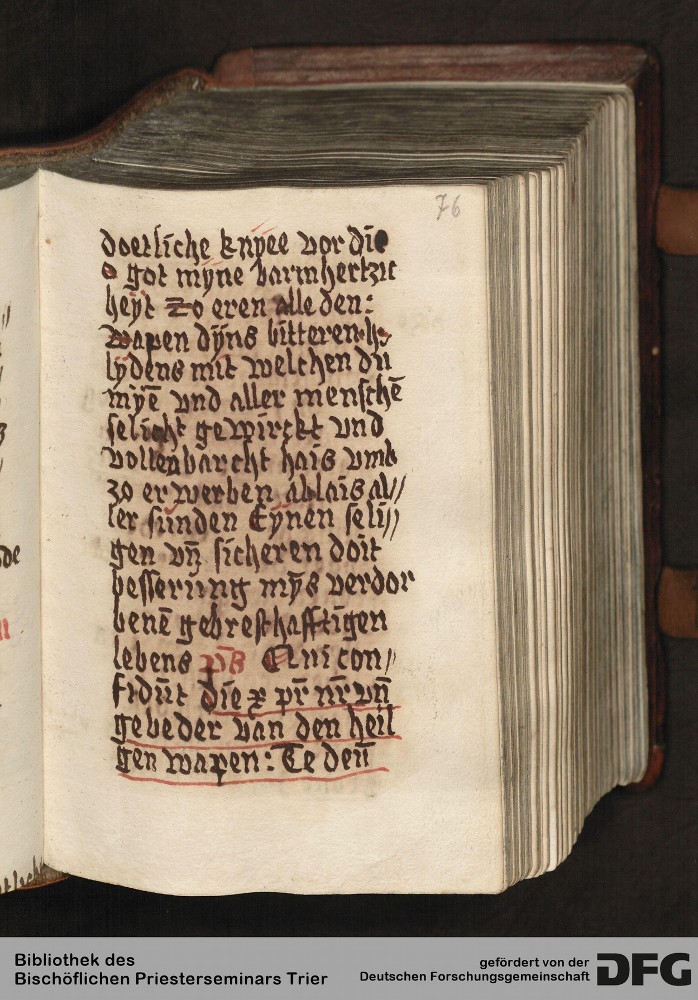 76
doetliche knyee vor die
o got myne barmhertzic
heyt zo eren alle den:
wapen dyns bitteren
lydens mit welchen du
myē vnd aller menschē
selicht gewirckt vnd
vollenbarcht hais vmb
zo erwerben ablais al//
ler sunden Eynen seli//
gen vn̄ sicheren doit
besserung mȳs verdor
benē gebresthafftigen
lebens ps̄ Qui con//
fidūt die x pr̄ nr̄ vn̄
gebeder van den heil
gen wapen: Te deū
Bibliothek des
Bischöflichen Priesterseminars Trier
gefördert von der
Deutschen Forschungsgemeinschaft
DFG